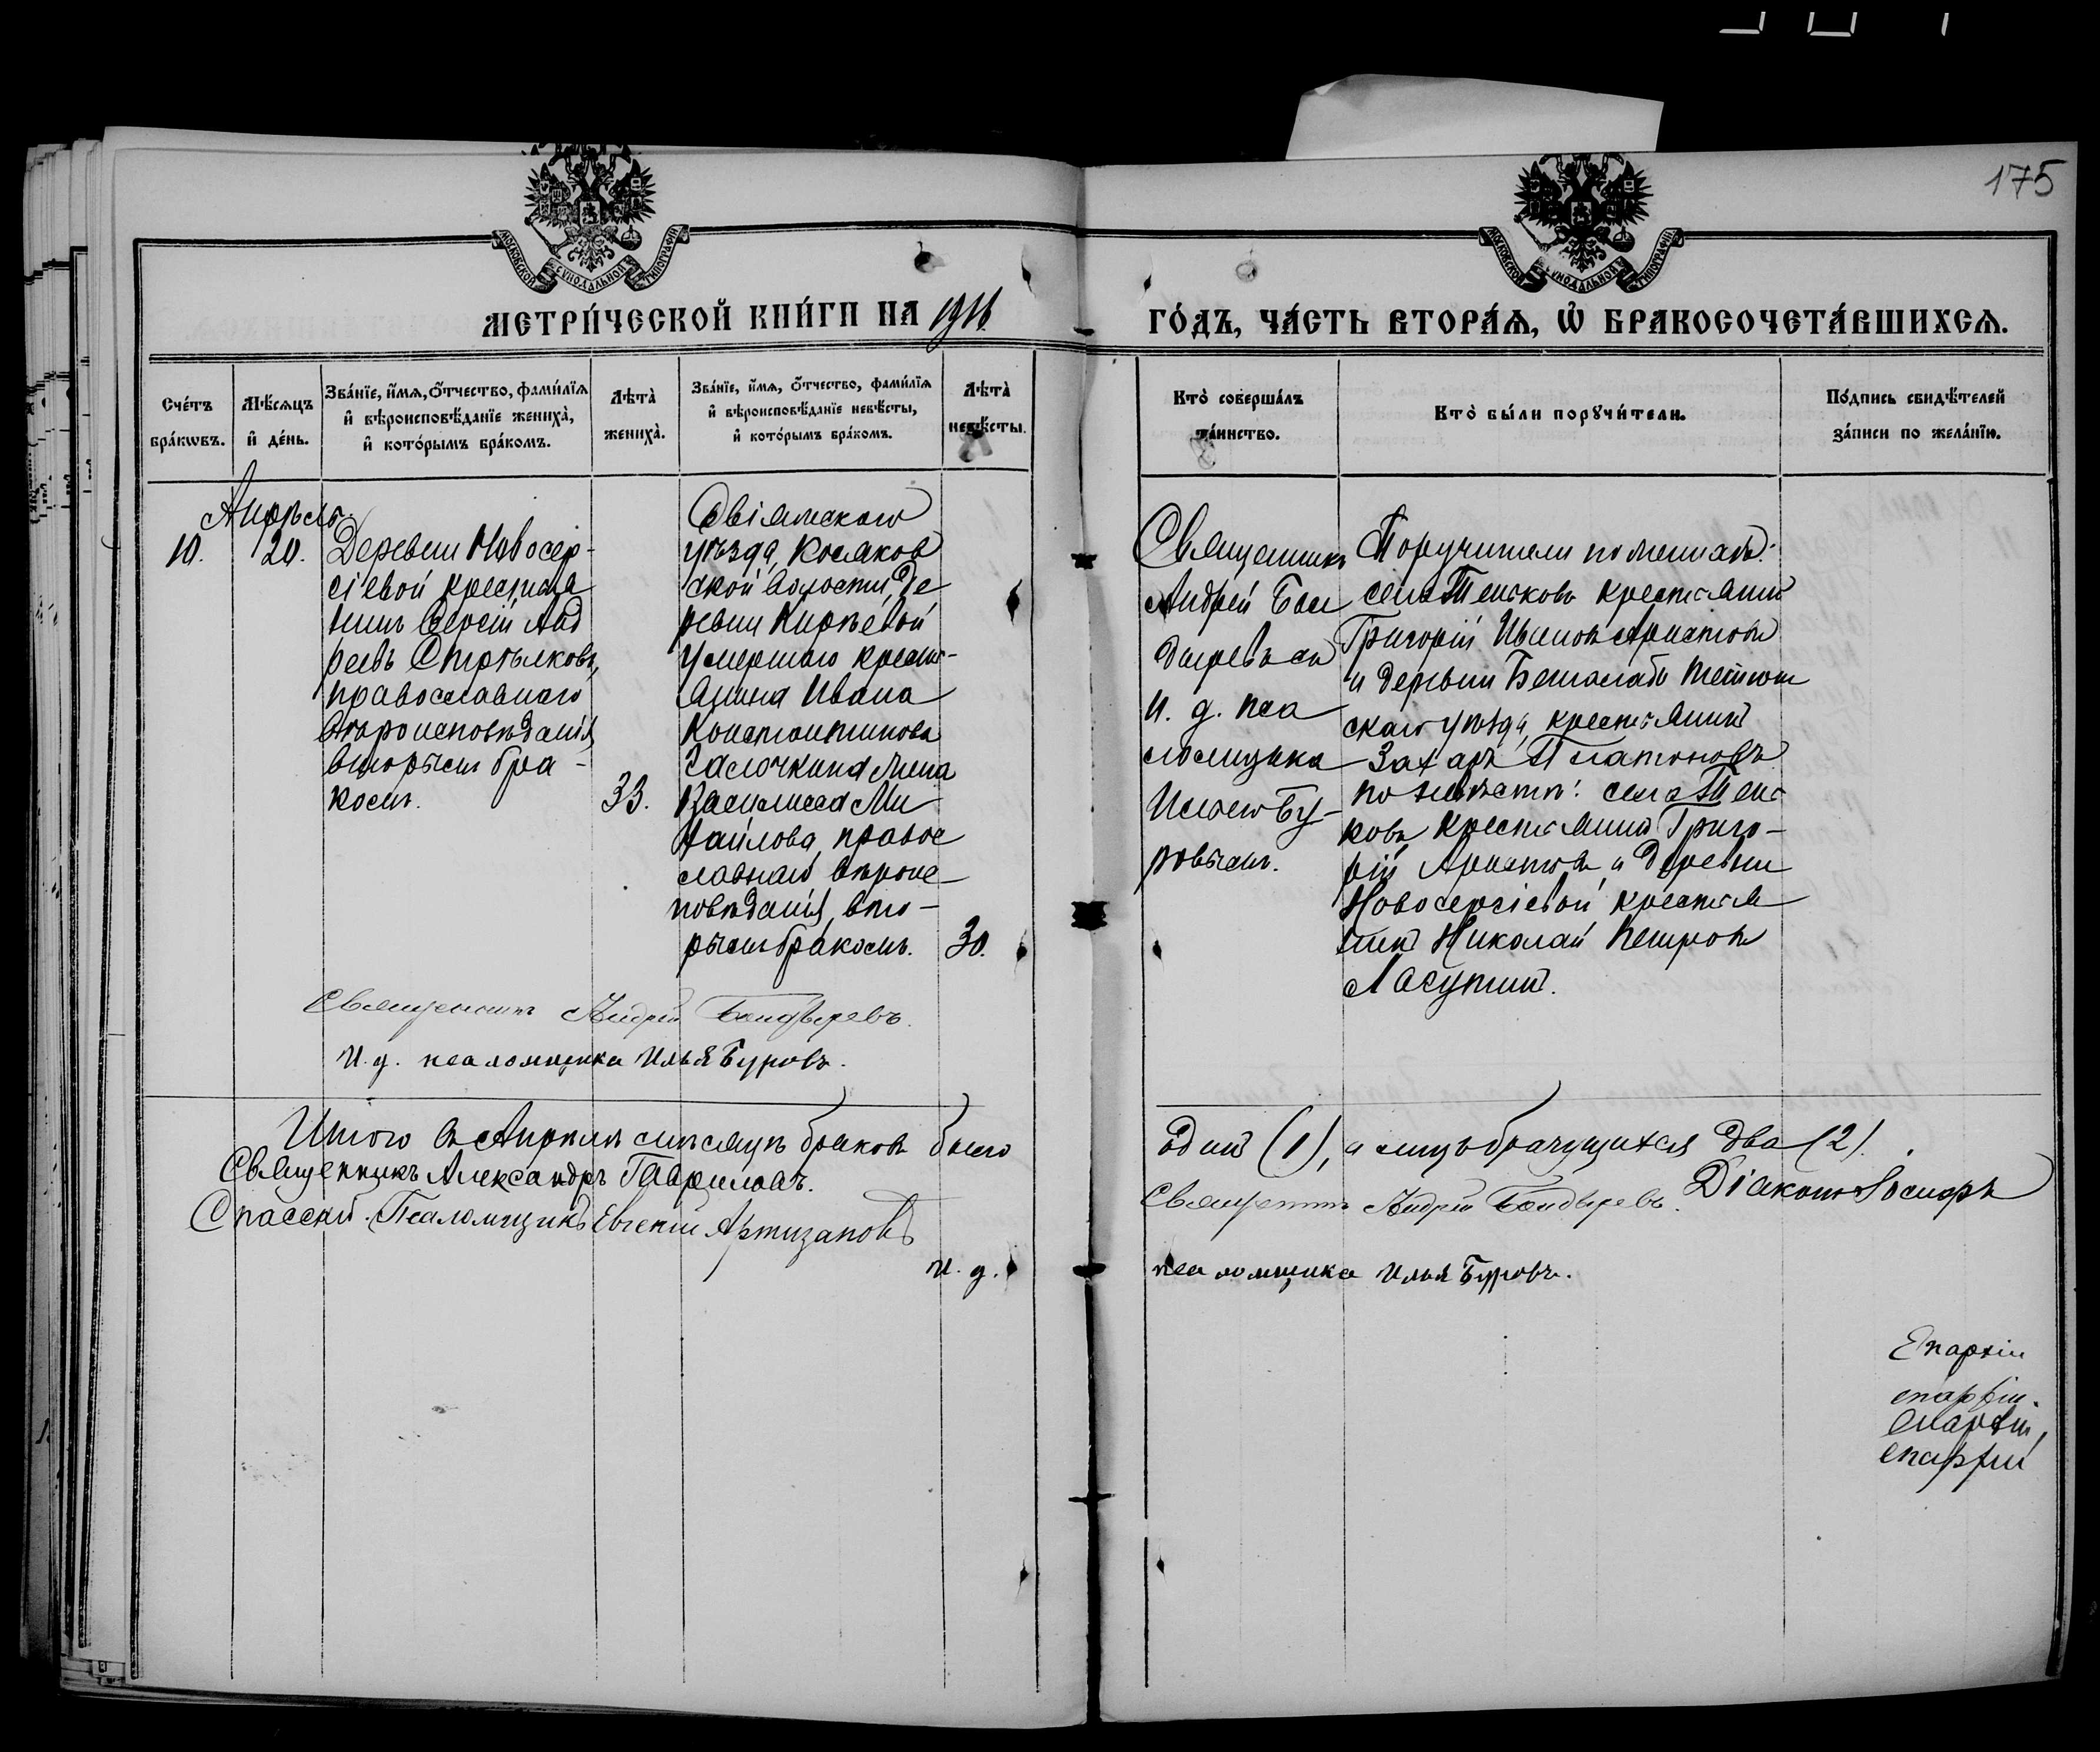 175
МОСКОВСКОЙ СѴНОДАЛЬНОЙ ТИПОГРАФІИ
МОСКОВСКОЙ СѴНОДАЛЬНОЙ ТИПОГРАФІИ
МЕТРИ́ЧЕСКОЙ КНИ́ГИ НА 1916
ГО́ДЪ, ЧА́СТЬ ВТОРА́Ѧ, Ѽ БРАКОСОЧЕТА́ВШИХСѦ.
Сче́тъ
бра́кωвъ.
Мѣ́сѧцъ
и҆ де́нь.
Зва́нїе, и҆́мѧ, ѻ҆́тчество, фами́лїѧ
и҆ вѣроисповѣ́данїе жениха̀,
и҆ кото́рымъ бра́комъ.
Лѣта̀
жениха̀.
Зва́нїе, и҆́мѧ, ѻ҆́тчество, фами́лїѧ
и҆ вѣроисповѣ́данїе невѣ́сты,
и҆ кото́рымъ бра́комъ.
Лѣта̀
невѣ́сты.
Кто̀ соверша́лъ
та́инство.
Кто̀ бы́ли порꙋчи́тели.
По́дпись свидѣ́телей
за́писи по жела́нїю.
Апрѣль.
10.
20.
Деревни Новосер-
гіевой крестья
нинъ Сергій Анд
реевъ Стрѣлковъ,
православнаго
вѣроисповѣданія,
вторымъ бра-
комъ.
33.
Свіяжскаго
уѣзда, Косяков
ской волости, де
ревни Кирѣевой
умершаго кресть-
янина Ивана
Константинова
Галочкина жена
Василисса Ми
хайлова, правос
лавнаго вѣроис-
повѣданія, вто-
рымъ бракомъ.
30.
Священникъ
Андрей Бон
дыревъ съ
и. д. пса
ломщика
Ильею Бу-
ровымъ.
Поручители по женихѣ:
села Теньковъ крестьянинъ
Григорій Ивановъ Аристовъ
и деревни Тетюш
скаго уѣзда, крестьянинъ
Захаръ Платоновъ
по невѣстѣ: села Тень
ковъ крестьянинъ Григо-
рій Аристовъ и деревни
Новосергіевой крестья
нинъ Николай Петровъ
Лагутинъ.
Священникъ Андрей Бондыревъ.
И. д. псаломщика Илья Буровъ.
Итого въ Апрѣлѣ мѣсяцѣ браковъ было
одинъ (1), а лицъ брачущихся два (2).
Священникъ Александръ Гавриловъ.
Священникъ Андрей Бондыревъ. Діаконъ Іосифъ
Спасскій. Псаломщикъ Евгеній Артизановъ
и. д.
псаломщика Илья Буровъ.
Епархіи
епархіи.
Епархіи,
епархіи